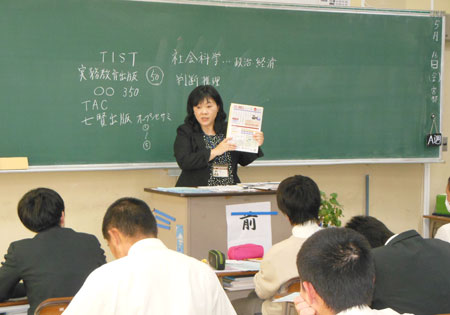 TIST
社会科学…政治 経済
実務教育出版 50
判断推理
○○ 350
TAC
七賢出版 オープンセサミ
①
④
5月
A週
前